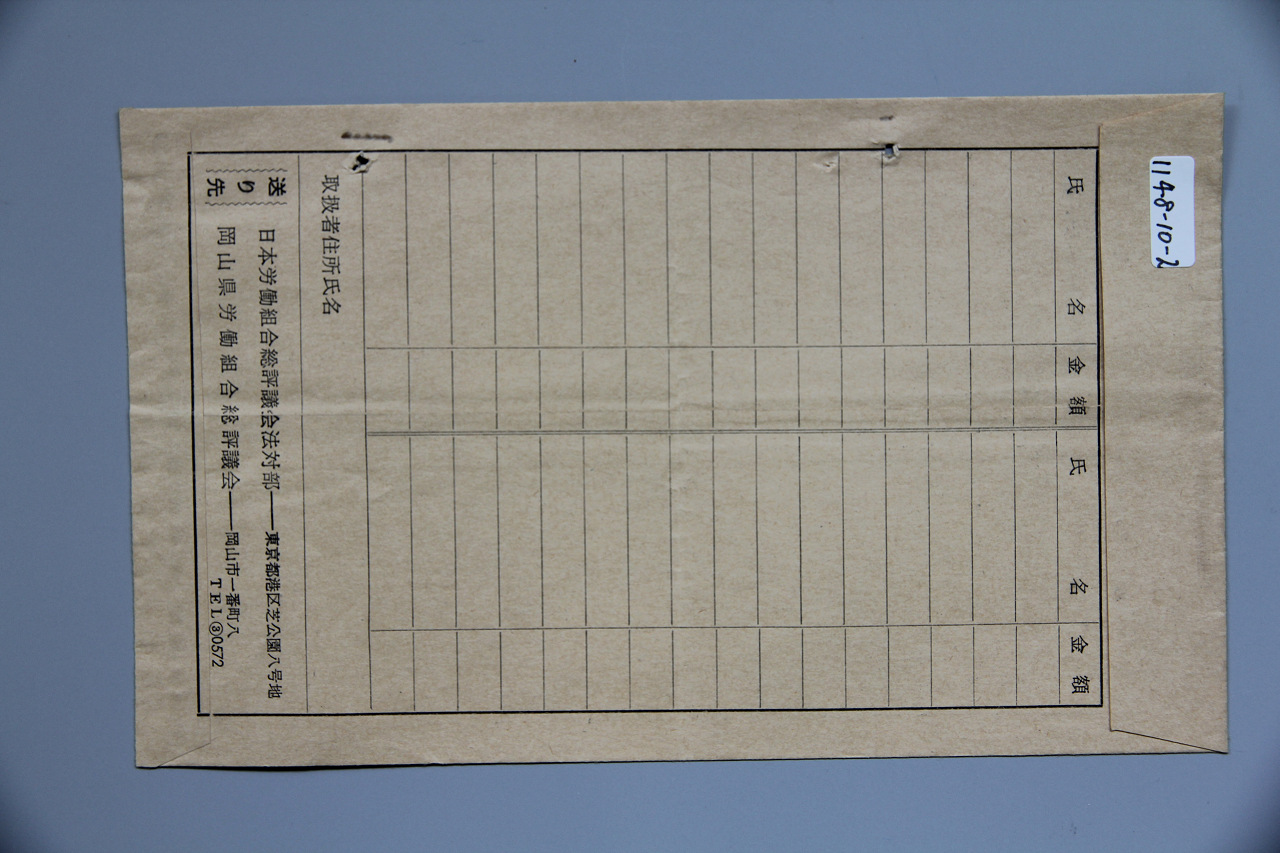 1148-10-2
氏名 金額 氏名 金額
取扱者住所氏名
送り先
日本労働組合総評議会法対部――東京都港区芝公園八号地
岡山県労働組合総評議会――岡山市一番町八
TEL③0572